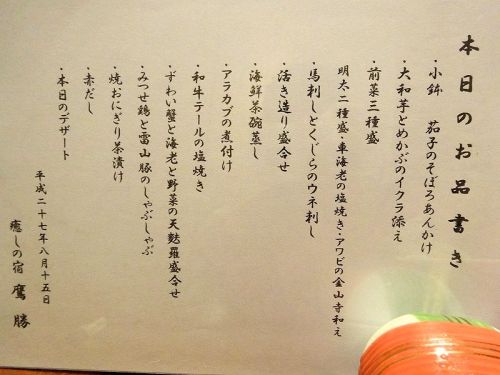 本日のお品書き
・小鉢 茄子のそぼろあんかけ
・大和芋とめかぶのイクラ添え
・前菜三種盛
明太二種盛・車海老の塩焼き・アワビの金山寺和え
・馬刺しとくじらのウネ刺し
・活き造り盛合せ
・海鮮茶碗蒸し
・アラカブの煮付け
・和牛テールの塩焼き
・ずわい蟹と海老と野菜の天麩羅盛合せ
・みつせ鶏と雷山豚のしゃぶしゃぶ
・焼おにぎり茶漬け
・赤だし
・本日のデザート
平成二十七年八月十五日
癒しの宿 鷹勝